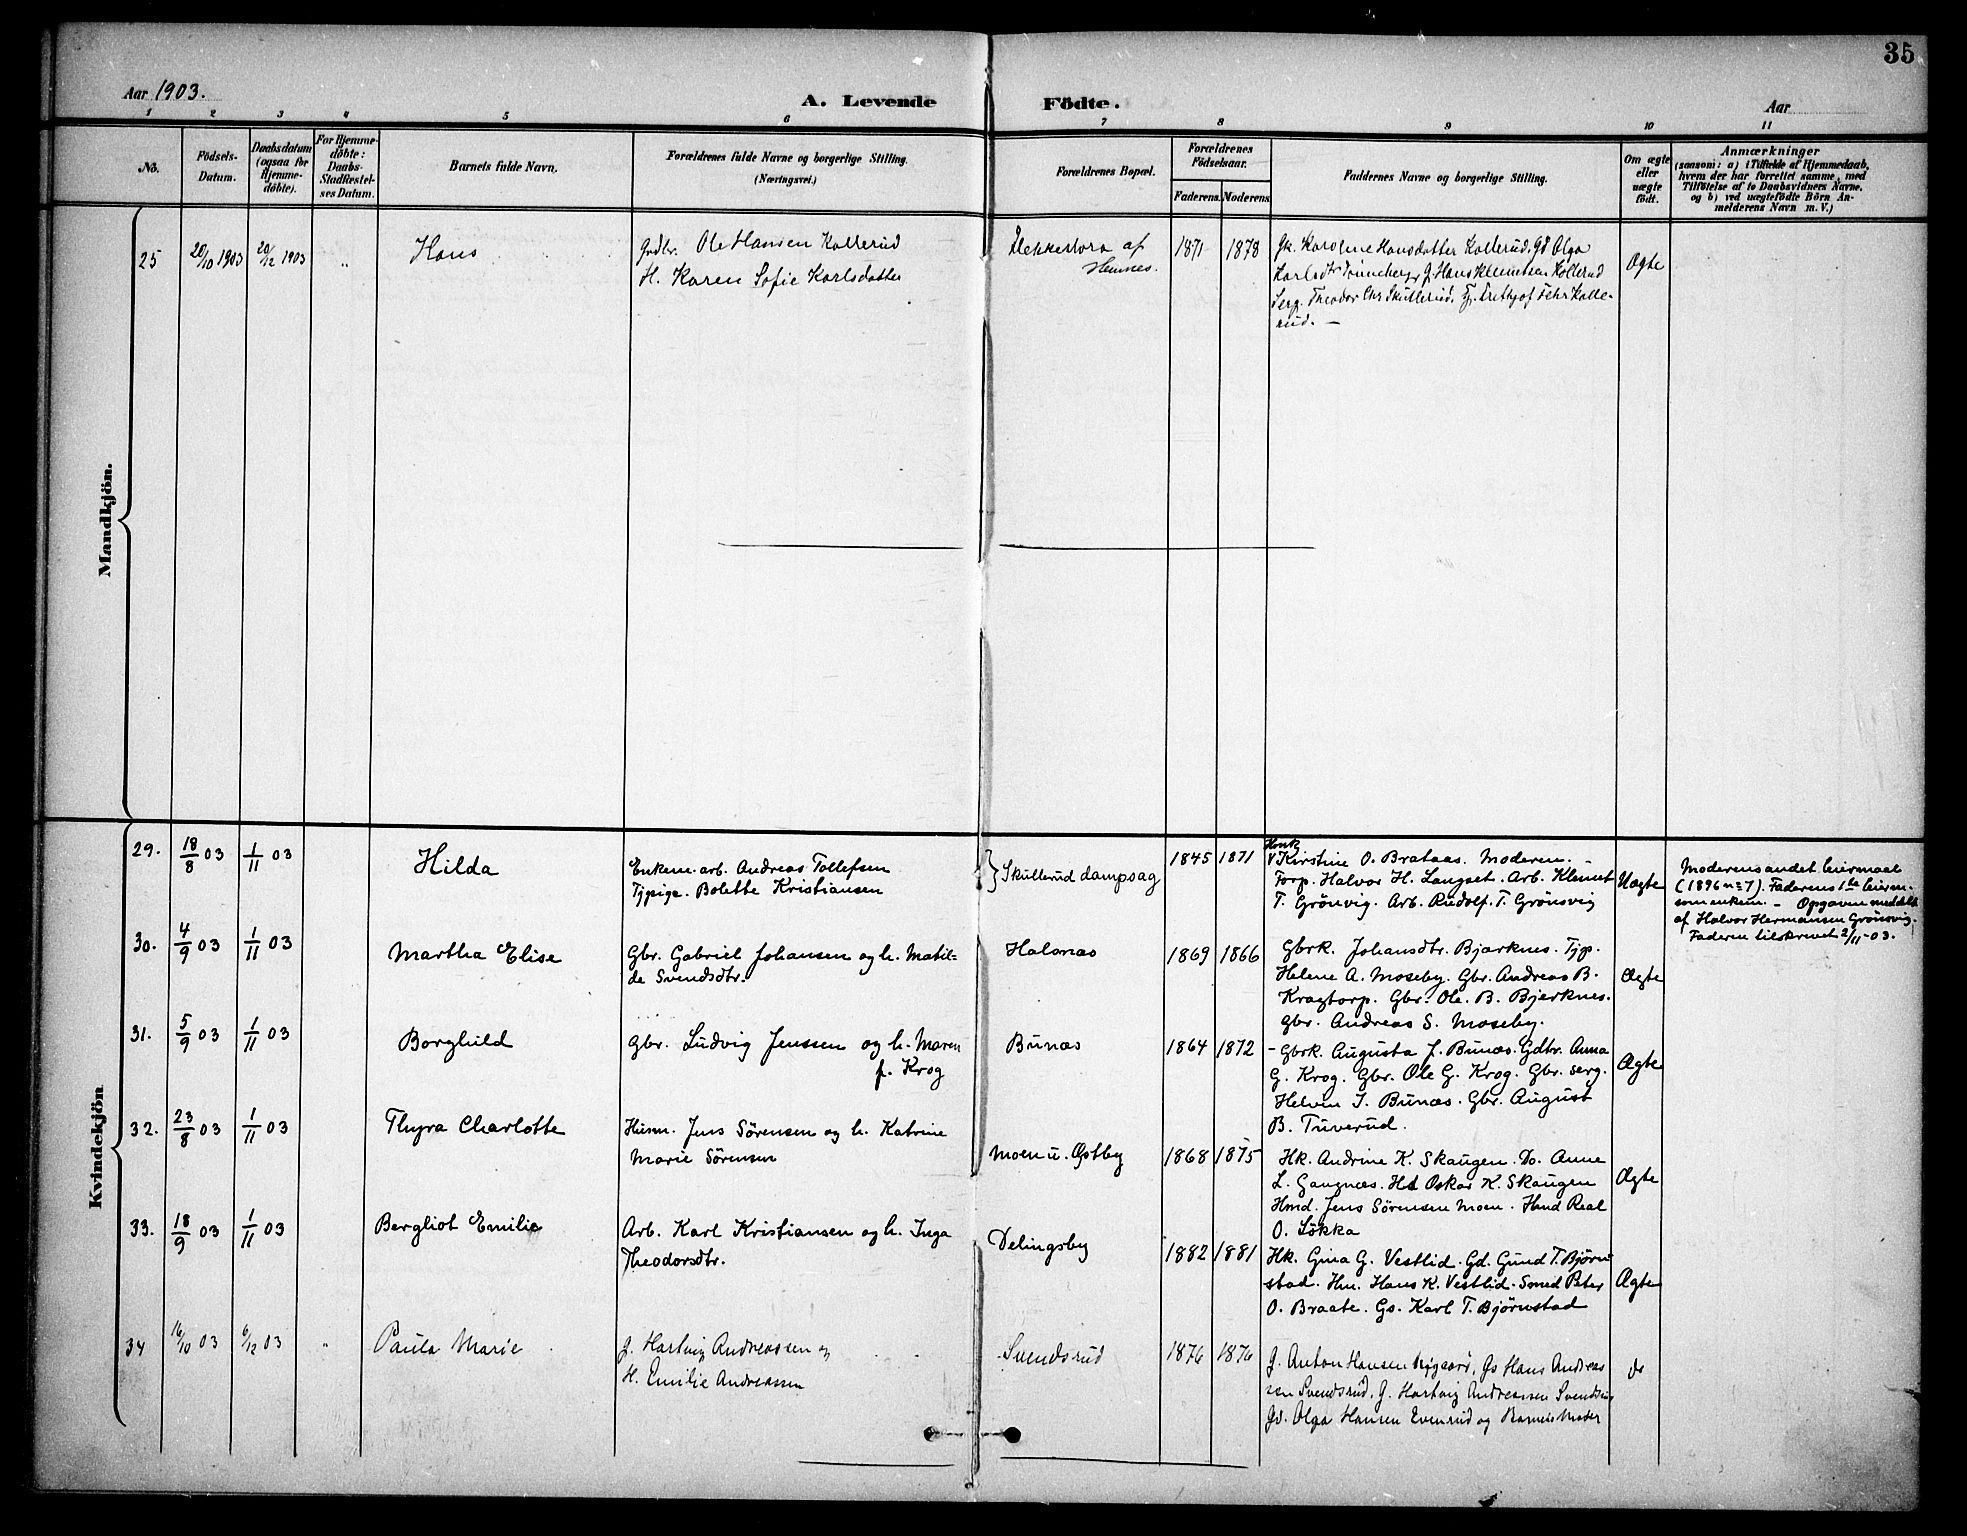 35
Aar 1903.
A. Levende Födte.
Aar
1 2 3 4 5 6 7 8 9 10 11
No.
Födsels-
Datum.
Daabsdatum
(ogsaa for
Hjemme-
döbte).
For Hjemme-
döbte:
Daabs-
Stadfæstel-
ses Datum.
Barnets fulde Navn.
Forældrenes fulde Navne og borgerlige Stilling.
(Næringsvei.)
Forældrenes Bopæl.
Forældrenes
Födselsaar.
Faderens. Moderens.
Faddernes Navne og borgerlige Stilling.
Om ægte
eller
uægte
födt.
Anmærkninger
(saasom: a) i Tilfælde af Hjemmedaab,
hvem der har forrettet samme, med
Tilföielse af to Daabsvidners Navne,
og b) ved uægtefödte Börn An-
melderens Navn m. V.)
Mandkjön.
25
20/10 1903
20/12 1903
"
Hans
Ole Hansen Kollerud
H. Karen Sofie Karlsdatter
af
Hemnes.
1871
1878
Gk. Karoline Hansdatter Kollerud. Gd Olga
Karlsdtr G. Hans Klemetsen Kollerud
Serg. Theodor Chr Skullerud.
rud. —
Ægte
Kvindekjön
29.
18/8 03
1/11 03
Hilda
Enkem. arb. Andreas Tollefsen
Tjpige. Bolette Kristiansen
Skullerud dampsag
1845
1871
Kirstine O. Brataas. Moderen. –
Torp. Halvor H. Langset. Arb. Klemet
T. Grönvig. Arb. Rudolf. T. Grönsvig
Uægte
Moderens andet leiermaal
(1896 n=7). Faderens 1ste leierm.
som enkem. – Opgaven meddelt
af Halvor Hermansen Grönsvig.
Faderen tilskrevet 2/11-03.
30.
4/9 03
1/11 03
Martha Elise
Gbr. Gabriel Johansen og h. Matil-
de Svendsdtr.
Halsnæs
1869
1866
Gbrk. Johansdtr. Bjerknes. Tjp.
Helene A. Moseby. Gbr. Andreas B.
Kragtorp. Gbr. Ole. B. Bjerknes.
gbr. Andreas S. Moseby.
Ægte
31.
5/9 03
1/11 03
Borghild
gbr. Ludvig Jenssen og h. Maren
f. Krog
Bunæs
1864
1872
– Gbrk. Augusta J. Bunæs. Gdtr. Anna
G. Krog. Gbr. Ole G. Krog. Gbr. serg.
Helvin J. Bunæs. Gbr. August
B. Tuverud.
Ægte
32.
23/8 03
1/11 03
Thyra Charlotte
Husm. Jens Sörensen og h. Katrine
Marie Sörensen
Moen u. Østby
1868
1875
Hk. Andrine K. Skaugen. Do. Anne
L. Gangnæs. Oskar K. Skaugen
Hmd. Jens Sörensen Moen. Hmd Real
O. Løkka
Ægte
33.
18/9 03
1/11 03
Bergliot Emilie
Arb. Karl Kristiansen og h. Inga
Theodorsdtr.
Delingsby
1882
1881
Hk. Gina G. Vestlid. Gd. Gund T. Bjørn
stad. Hm. Hans K. Vestlid. Smed Peter
O. Braate. Gs. Karl T. Bjørnstad
Ægte
34
16/10 03
6/12 03
"
Paula Marie
G. Hartvig Andreassen og
H. Emilie Andreassen
Svendsrud
1876
1876
G. Anton Hansen Nygaard, Gs Hans Andreas
sen Svendsrud, G. Hartvig Andreassen Svendsrud
Gd. Olga Hansen Evenrud og Barnets Moder
do